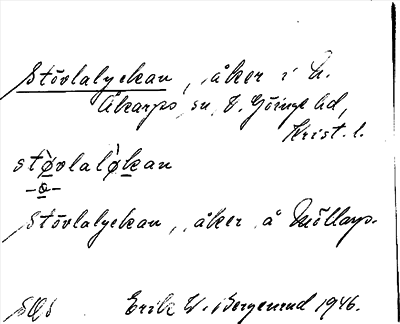 Stövlalyckan, åker i N.
Åkarps sn, V. Göinge hd,
Krist. l.
støvlaløkan
-ø-
Stövlalyckan, åker å Möllarp.
Erik W. Bergenrud 1946.